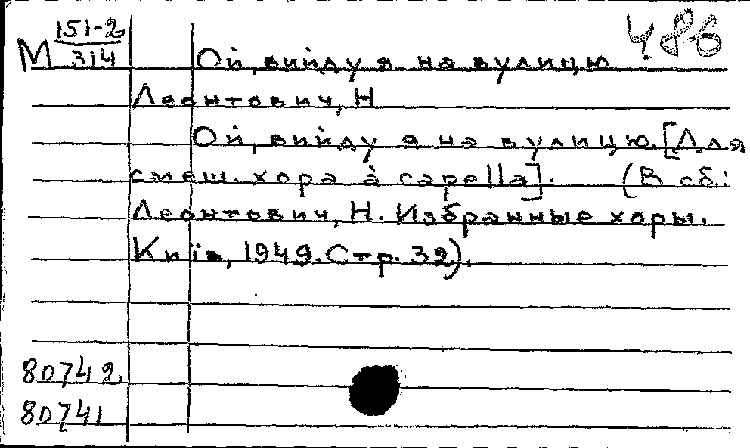 М 151-2/314
486
Ой, вийду я на вулицю
Леонтович, Н
Ой, вийду я на вулицю. [Для
смеш. хора à capella]. (В сб.:
Леонтович, Н. Избранные хоры.
Київ, 1949. Стр. 32).
80742
80741